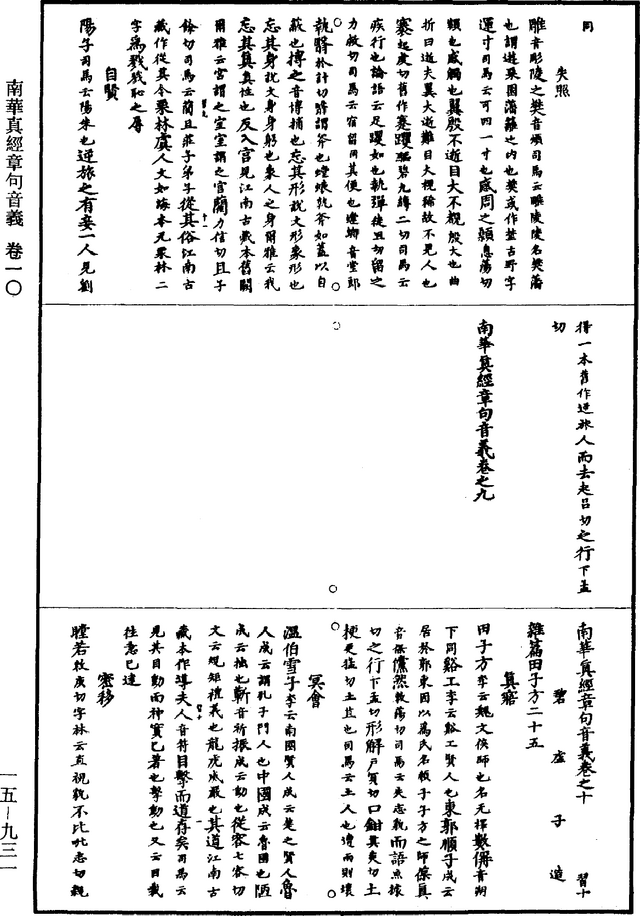 同
失照
雕音彫陵之樊音煩司馬云雕陵陵名樊藩
也謂遊栗園藩籬之内也樊或作埜古野字
運寸司馬云可四一寸也感周之顙息蕩切
顙也感觸也翼殷不逝目大不覩殷大也曲
折曰逝夫翼大逝難目大視稀故不見人也
蹇起虔切舊作褰躩驅碧九縛二切司馬云
疾行也論語云足躩如也執彈徒旦切留之
力救切司馬云宿留伺其便也螳螂音堂郎
執翳於計切所謂斧也螳蜋執斧如蓋以自
蔽也搏之音博捕也忘其形說文形象形也
忘其身說文身躬也象人之身爾雅云我
忘其真真性也反入宫見江南古藏本舊闕
爾雅云宫謂之室室謂之宫藺力信切且子
餘切司馬云藺且莊子弟子從其俗江南古
藏作從其令栗林虞人文如海本元栗林二
字為戮戮恥之辱
自賢
陽子司馬云陽朱也逆旅之有妾一人見劉
得一本舊作逆旅人而去起吕切之行下孟
切
南華真經章句音義卷之九
南華真經章句音義卷之十　習十
碧虛子造
雜篇田子方二十五
真寤
田子方李云魏文侯師也名无擇數稱音朔
下同谿工李云谿工賢人也東郭順子成云
居於郭東因以為氏名順子子方之師葆真
音保儻然敕蕩切司馬云失志貌而語魚據
切之行下孟切形解户買切口鉗其炎切土
梗更猛切土苴也司馬云土人也遭雨則壞
冥會
溫伯雪子李云南國賢人成云楚之賢人魯
人成云謂孔子門人也中國成云魯國也陋
成云拙也蘄音祈振成云動也從容七容切
文云規矩禮義也龍虎成威也其道江南古
藏本作導夫人音符目擊而道存矣司馬云
見其目動而神實已著也擊動也又云目裁
往意已達
密移
瞠若敕庚切字林云直視貌不比毗志切親
南華真經章句音義　卷一〇
一五—九三一